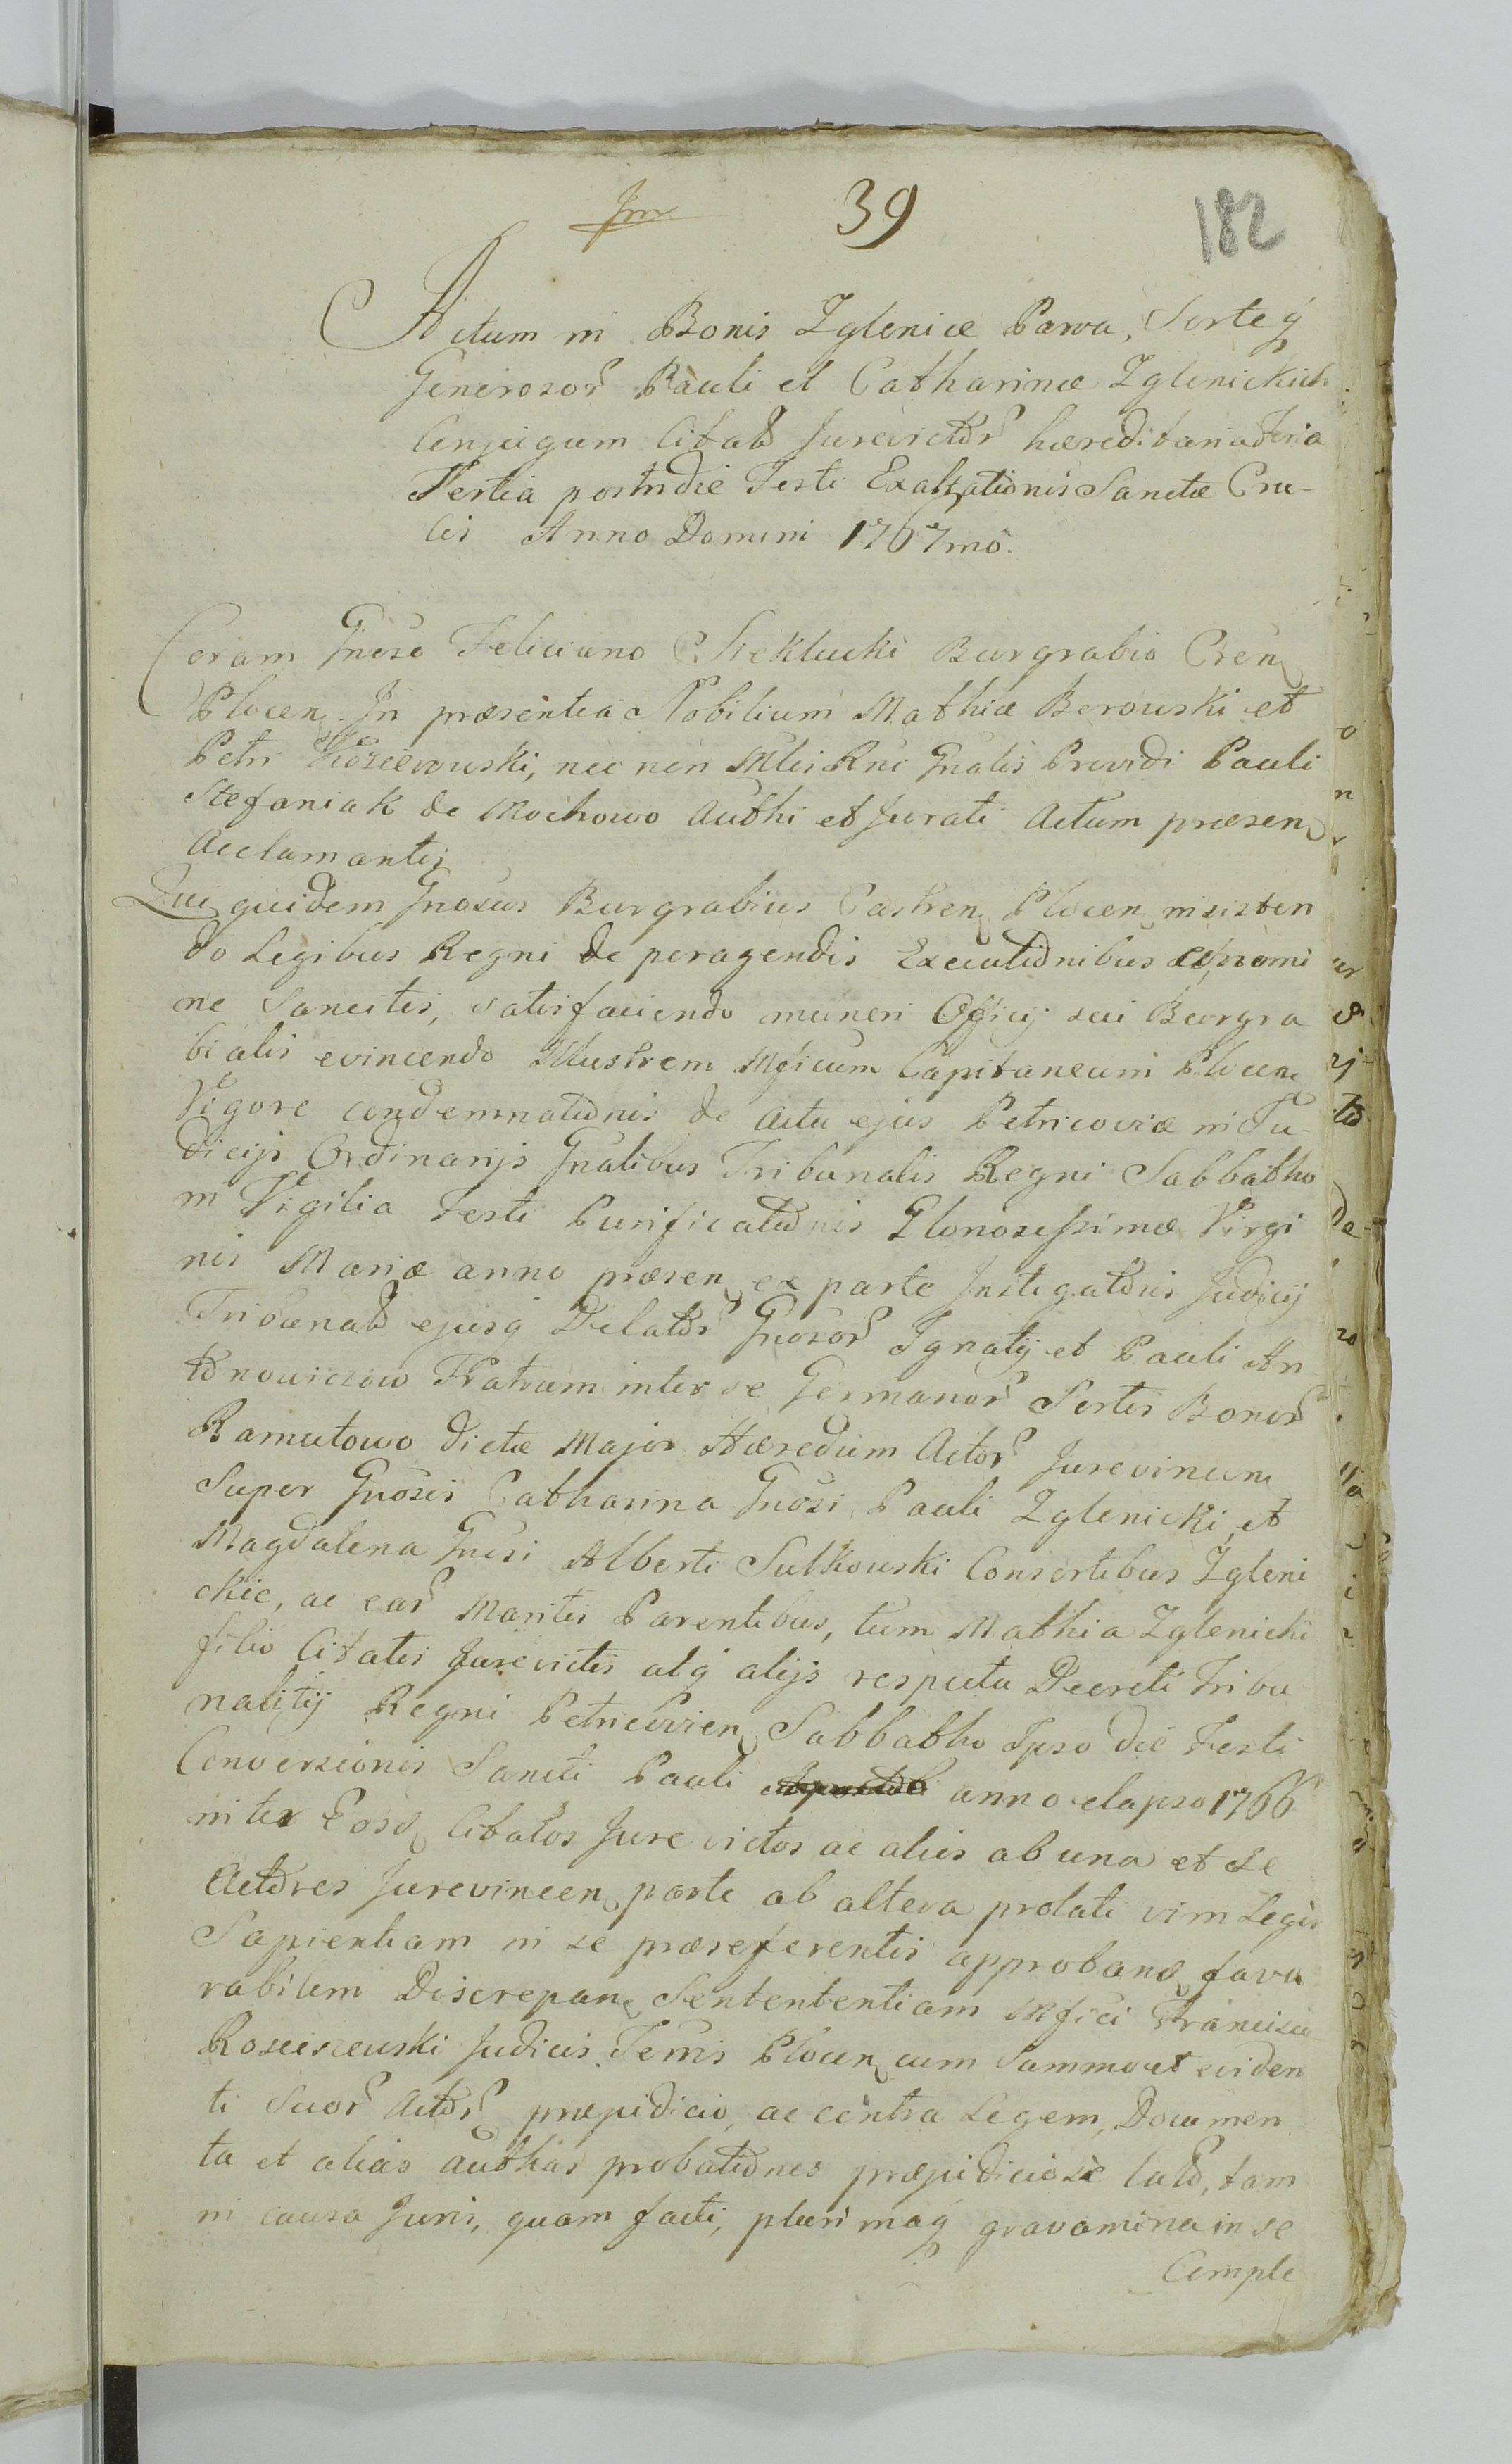 Im 39 182
Actum in Bonis Zglenice Parva, Sorteq
Generosor Pauli et Catharinæ Zglenickich
Conjugum Citat Jurevictor hæreditaria Feria
Tertia postridie Festi Exaltationis Sanctæ Cru-
cis Anno Domini 1767mo.
Coram Gnoso Feliciano Sieklucki Burgrabio Cren
Plocen. In præsentia Nobilium Mathiæ Borowski et
Petri, nec non Mlis Rni Gnalis Providi Pauli
Stefaniak de Mochowo Authi et Jurati Actum præsen
Acclamantis
Qui quidem Gnosus Burgrabius Castren Plocen insisten
do Legibus Regni de peragendis Executionibus eo nomi
ne Sancitis, satisfaciendo muneri Officij sui Burgra
bialis evincendo Illustrem Mgficum Capitaneum Plocen
Vigore condemnationis de Actu ejus Petricoviæ in Ju-
dicijs Ordinarijs Gnalibus Tribunalis Regni Sabbatho
in Vigilia Festi Purificationis Gloriosissimæ Virgi
nis Mariæ anno præsen ex parte Instigatoris Judicij
Tribunal ejusq Delator Gnosor Ignatij et Pauli An
tonowiczow Fratrum inter se Germanor Sortis Bonor
Ramutowo dictæ Major Hæredum Actor Jurevincen
Super Gnosis Catharina Gnosi Pauli Zglenicki, et
Magdalena Gnosi Alberti Sulkowski Consortibus Zgleni
ckie, ac ear Maritis Parentibus, tum Mathia Zglenicki
filio Citatis Jurevictis atq alijs respectu Decreti Tribu
nalitij Regni Petricovien Sabbatho Ipso die Festi
Conversionis Sancti Pauli Apostoli anno elapso 1766
inter Eosd Citatos Jurevictos ac alios ab una et se
Actores Jurevincen parte ab altera prolati vim Legis
Sapientiam in se præseferentis approband favo
rabilem Discrepan Sentententiam Mfici Francisci
Rosciszewski Judicis Terris Plocen cum Summo et eviden
ti Suor Actor præjudicio, ac contra Legem, Documen
ta et alias authas probationes præjudiciosè lato, tam
in causa Juris, quam facti, plurimaq gravamina in se
Comple